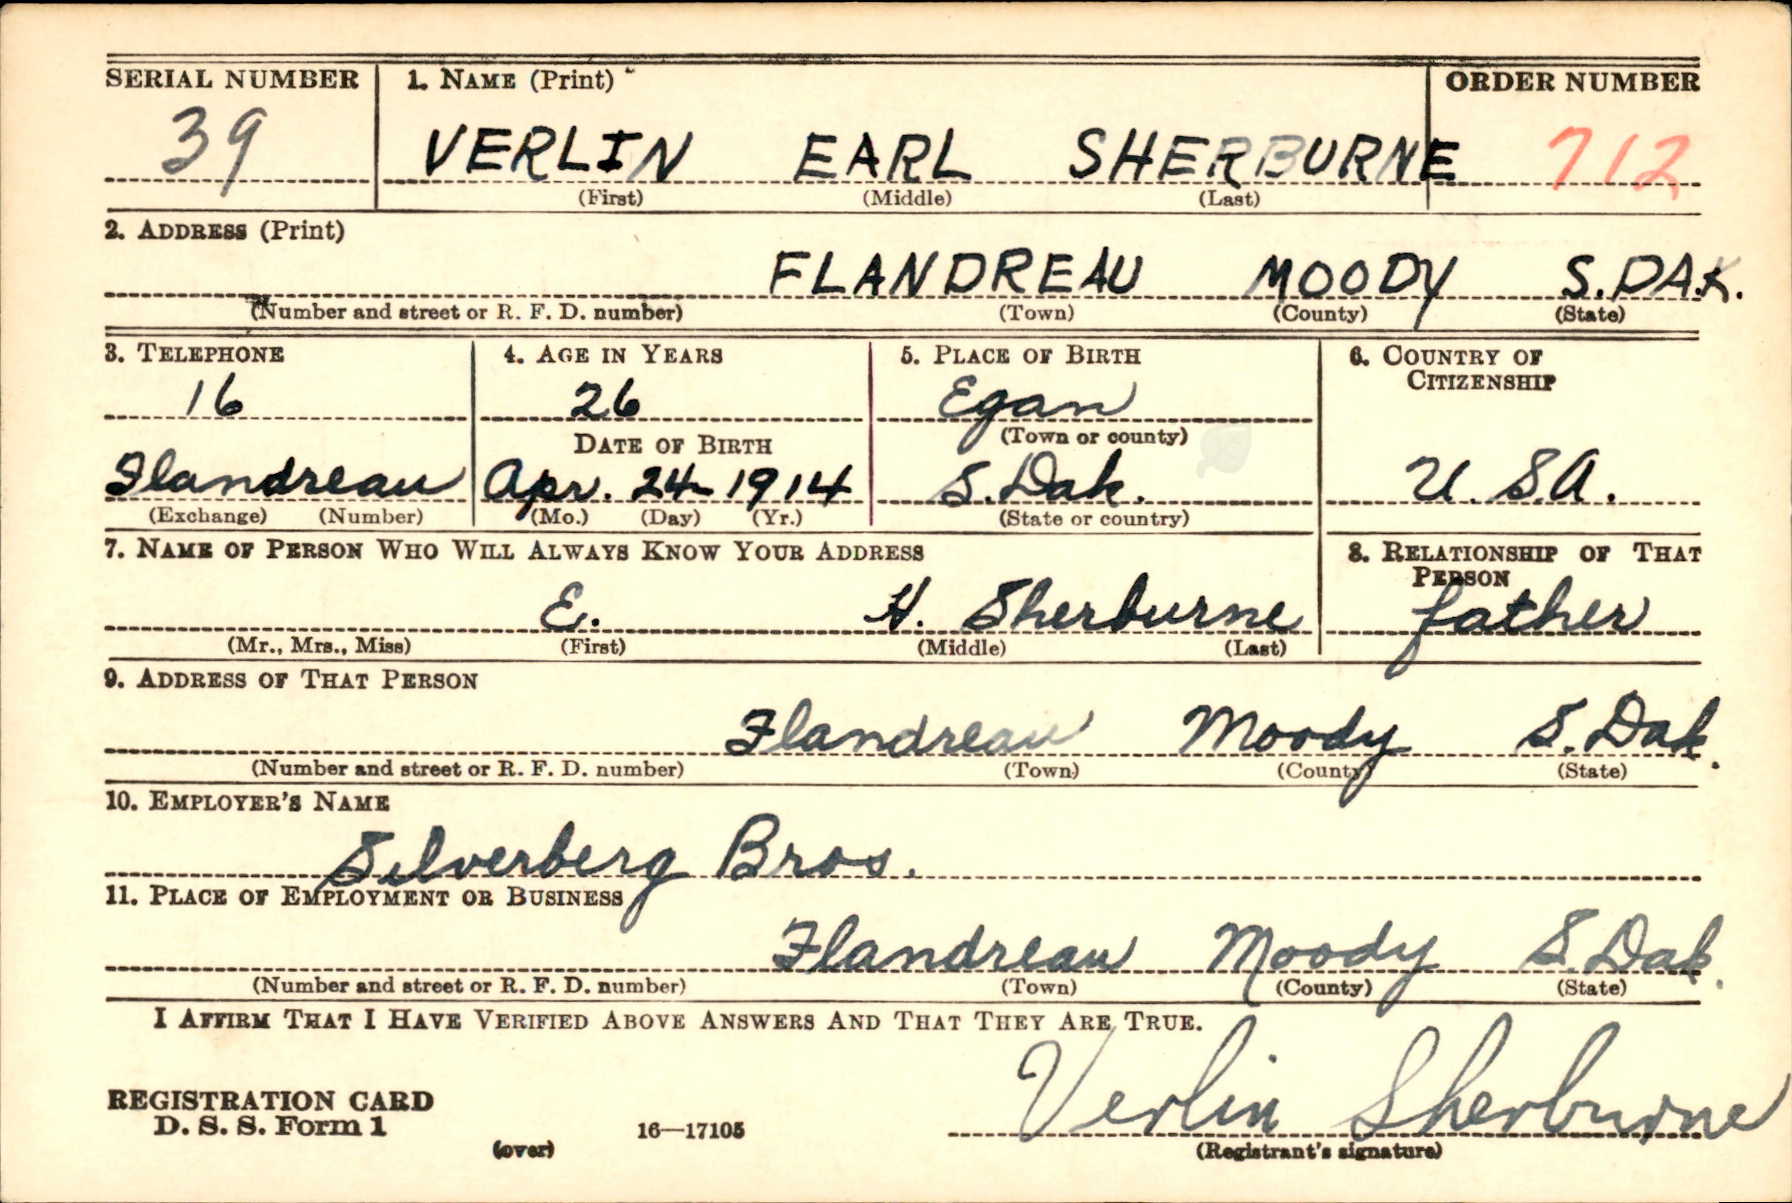 SERIAL NUMBER 1. NAME (Print) ORDER NUMBER
39 VERLIN EARL SHERBURNE 712
(First) (Middle) (Last)
2. ADDRESS (Print)
FLANDREAU MOODY S.DAK.
(Number and street or R. F. D. number) (Town) (County) (State)
3. TELEPHONE 4. AGE IN YEARS 5. PLACE OF BIRTH 6. COUNTRY OF
CITIZENSHIP
16 26 Egan
DATE OF BIRTH (Town or county)
Flandreau Apr. 24 1914 S.Dak. U.S.A.
(Exchange) (Number) (Mo.) (Day) (Yr.) (State or country)
7. NAME OF PERSON WHO WILL ALWAYS KNOW YOUR ADDRESS 8. RELATIONSHIP OF THAT
PERSON
E. H. Sherburne father
(Mr., Mrs., Miss) (First) (Middle) (Last)
9. ADDRESS OF THAT PERSON
Flandreau Moody S.Dak.
(Number and street or R. F. D. number) (Town) (County) (State)
10. EMPLOYER'S NAME
Silverberg Bros.
11. PLACE OF EMPLOYMENT OR BUSINESS
Flandreau Moody S.Dak.
(Number and street or R. F. D. number) (Town) (County) (State)
I AFFIRM THAT I HAVE VERIFIED ABOVE ANSWERS AND THAT THEY ARE TRUE.
REGISTRATION CARD
D. S. S. Form 1 Verlin Sherburne
(over) 16—17105 (Registrant's signature)